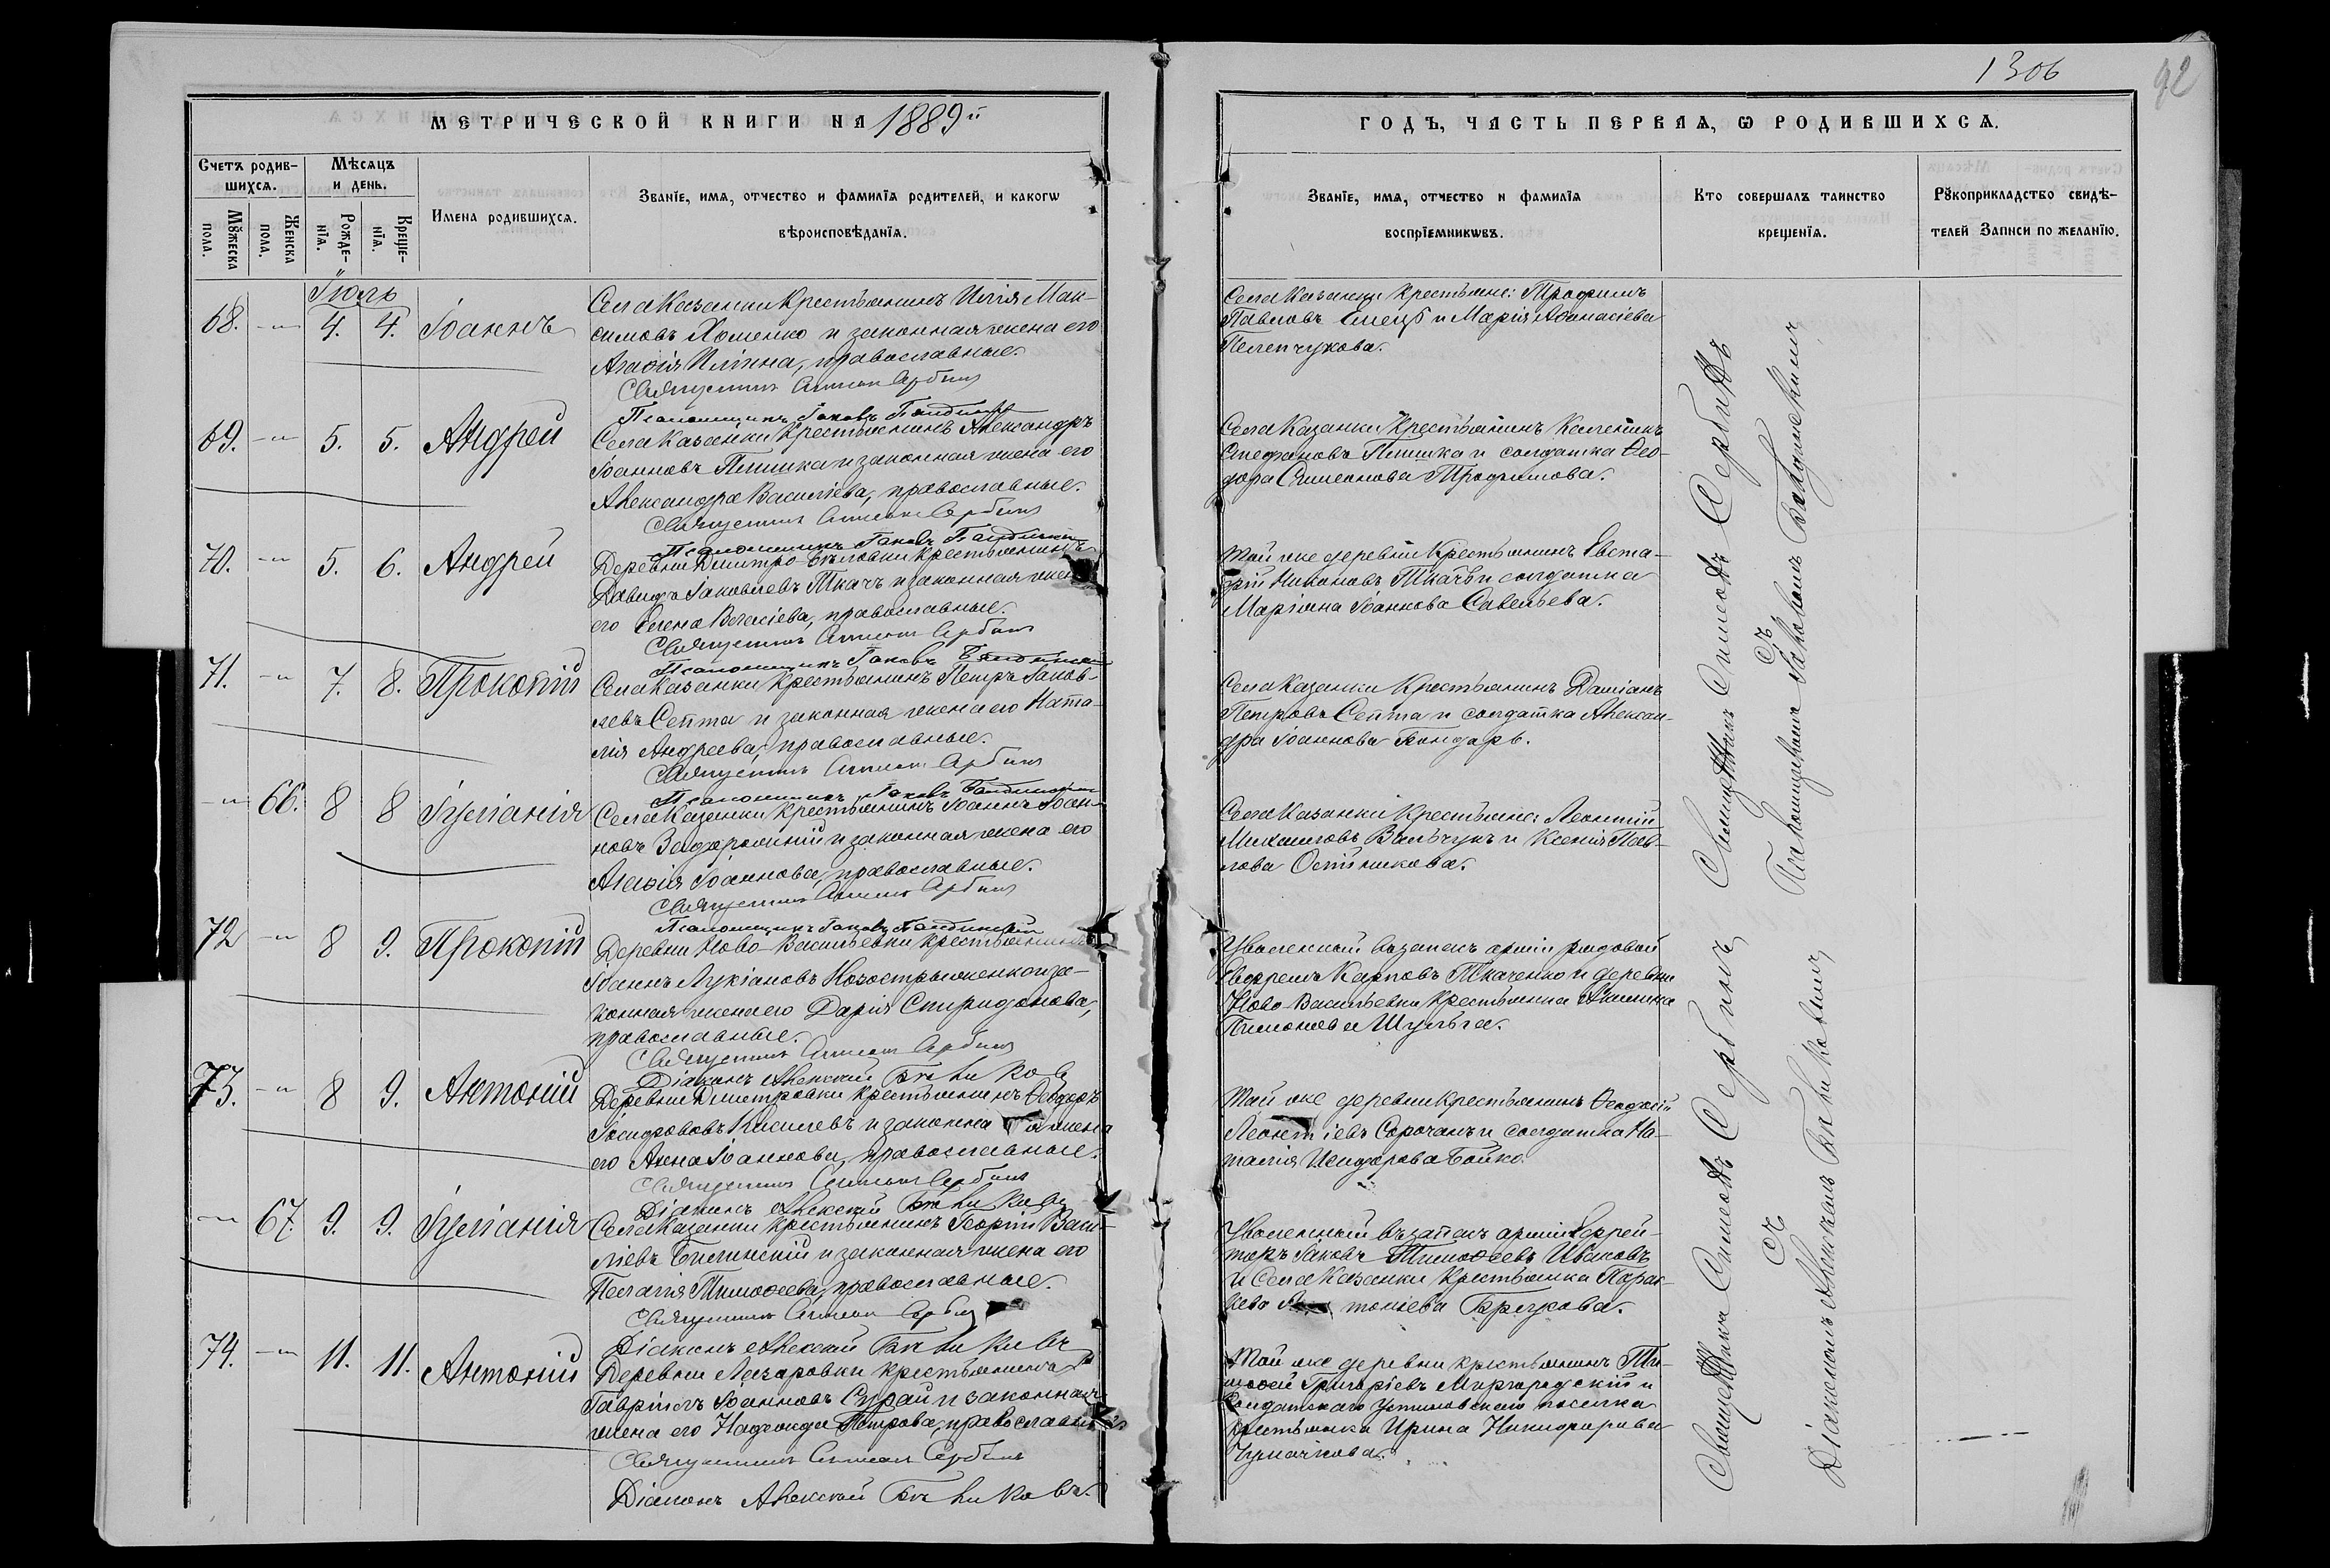 1306
92
МЕТРИЧЕСКОЙ КНИГИ НА 1889й
ГОДЪ, ЧАСТЬ ПЕРВАѦ, Ѡ РОДИВШИХСѦ.
Счетъ родив-
шихсѧ.
Мѣсѧцъ
и день.
Имена родившихсѧ.
Званїе, имѧ, отчество и фамилїѧ родителей, и какогѡ
вѣроисповѣданїѧ.
Мꙋжеска
пола.
Женска
пола.
Рожде-
нїѧ.
Креще-
нїѧ.
Званїе, имѧ, отчество и фамилїѧ
воспрїемникѡвъ.
Кто совершалъ таинство
крещенїѧ.
Рꙋкоприкладство свидѣ-
телей записи по желанїю.
Іюль
68. -"- 4. 4. Іоаннъ
Села Казанки Крестьянинъ Илія Мак-
симовъ Хоменко и законная жена его
Агафія Иліина, православные.
Священникъ Симеонъ Сербинъ
Псаломщикъ Іаковъ
Села Казанки Крестьяне: Трофимъ
Павловъ и Марія Афанасіева
69. -"- 5. 5. Андрей
Села Казанки Крестьянинъ Александръ
Іоанновъ Пшика и законная жена его
Александра Василіева, православные.
Священникъ Симеонъ Сербинъ
Псаломщикъ Іаковъ
Села Казанки Крестьянинъ
Стефановъ Пшика и солдатка Ѳео-
дора Симеонова Трофимова.
70. -"- 5. 6. Андрей
Деревни Дмитро-Бѣловки крестьянинъ
Давидъ Іаковлевъ Ткачъ и законная жена
его Елена православные.
Священникъ Симеонъ Сербинъ
Псаломщикъ Іаковъ
Той же деревни Крестьянинъ Евста-
фій Никоновъ Ткачъ и солдатка
Маріяна Іоаннова Савельева.
71. -"- 7. 8. Прокопій
Села Казанки Крестьянинъ Петръ Іаков-
левъ Септа и законная жена его Ната-
лія Андреева, православные.
Священникъ Симеонъ Сербинъ
Псаломщикъ Іаковъ
Села Казанки Крестьянинъ Даміанъ
Петровъ Септа и солдатка Алексан-
дра Іоаннова Бондарь.
-"- 66. 8 8 Іуліанія
Села Казанки Крестьянинъ Іоаннъ Іоан-
новъ Задорожній и законная жена его
Агафія Іоаннова, православные.
Священникъ Симеонъ Сербинъ
Псаломщикъ Іаковъ
Села Казанки Крестьяне: Леонтій
Михаиловъ Вальчукъ и Ксенія Пав-
лова
72 -"- 8 9. Прокопій
Деревни Ново-Васильевки крестьянинъ
Іоаннъ Лукіановъ и за-
конная жена его Дарія Спиридонова,
православные.
Священникъ Симеонъ Сербинъ
Діаконъ Алексій
Уволенный въ запасъ арміи рядовой
Ефремъ Карповъ Ткаченко и деревни
Ново-Васильевки крестьянка Акилина
Шульга.
73. -"- 8 9. Антоній
Деревни Дмитровки крестьянинъ Ѳеодоръ
Киселевъ и законная жена
его Анна Іоаннова, православные.
Священникъ Симеонъ Сербинъ
Діаконъ Алексій
Той же деревни крестьянинъ Ѳеодосій
Леонтіевъ Сорочанъ и солдатка На-
талія Исидорова Бойко.
-"- 67. 9. 9. Іуліанія
Села Казанки крестьянинъ Георгій Васи-
ліевъ и законная жена его
Пелагія Тимоѳеева, православные.
Священникъ Симеонъ Сербинъ
Діаконъ Алексій
Уволенный въ запасъ арміи Ефрей-
торъ Іаковъ Тимоѳеевъ Ивановъ
и Села Казанки Крестьянка Парас-
кева
74. -"- 11. 11. Антоній
Деревни Лазаровки крестьянинъ
Гавріилъ Іоанновъ Сурай и законная
жена его Надежда Петрова, православные.
Священникъ Симеонъ Сербинъ
Діаконъ Алексій
Той же деревни крестьянинъ Ти-
моѳей Григоріевъ Миргородскій и
поселка
крестьянка Ирина Никифорова
Священникъ Симеонъ Сербинъ
съ
Псаломщикомъ Іаковомъ
Священникъ Симеонъ Сербинъ
съ
Діакономъ Алексіемъ